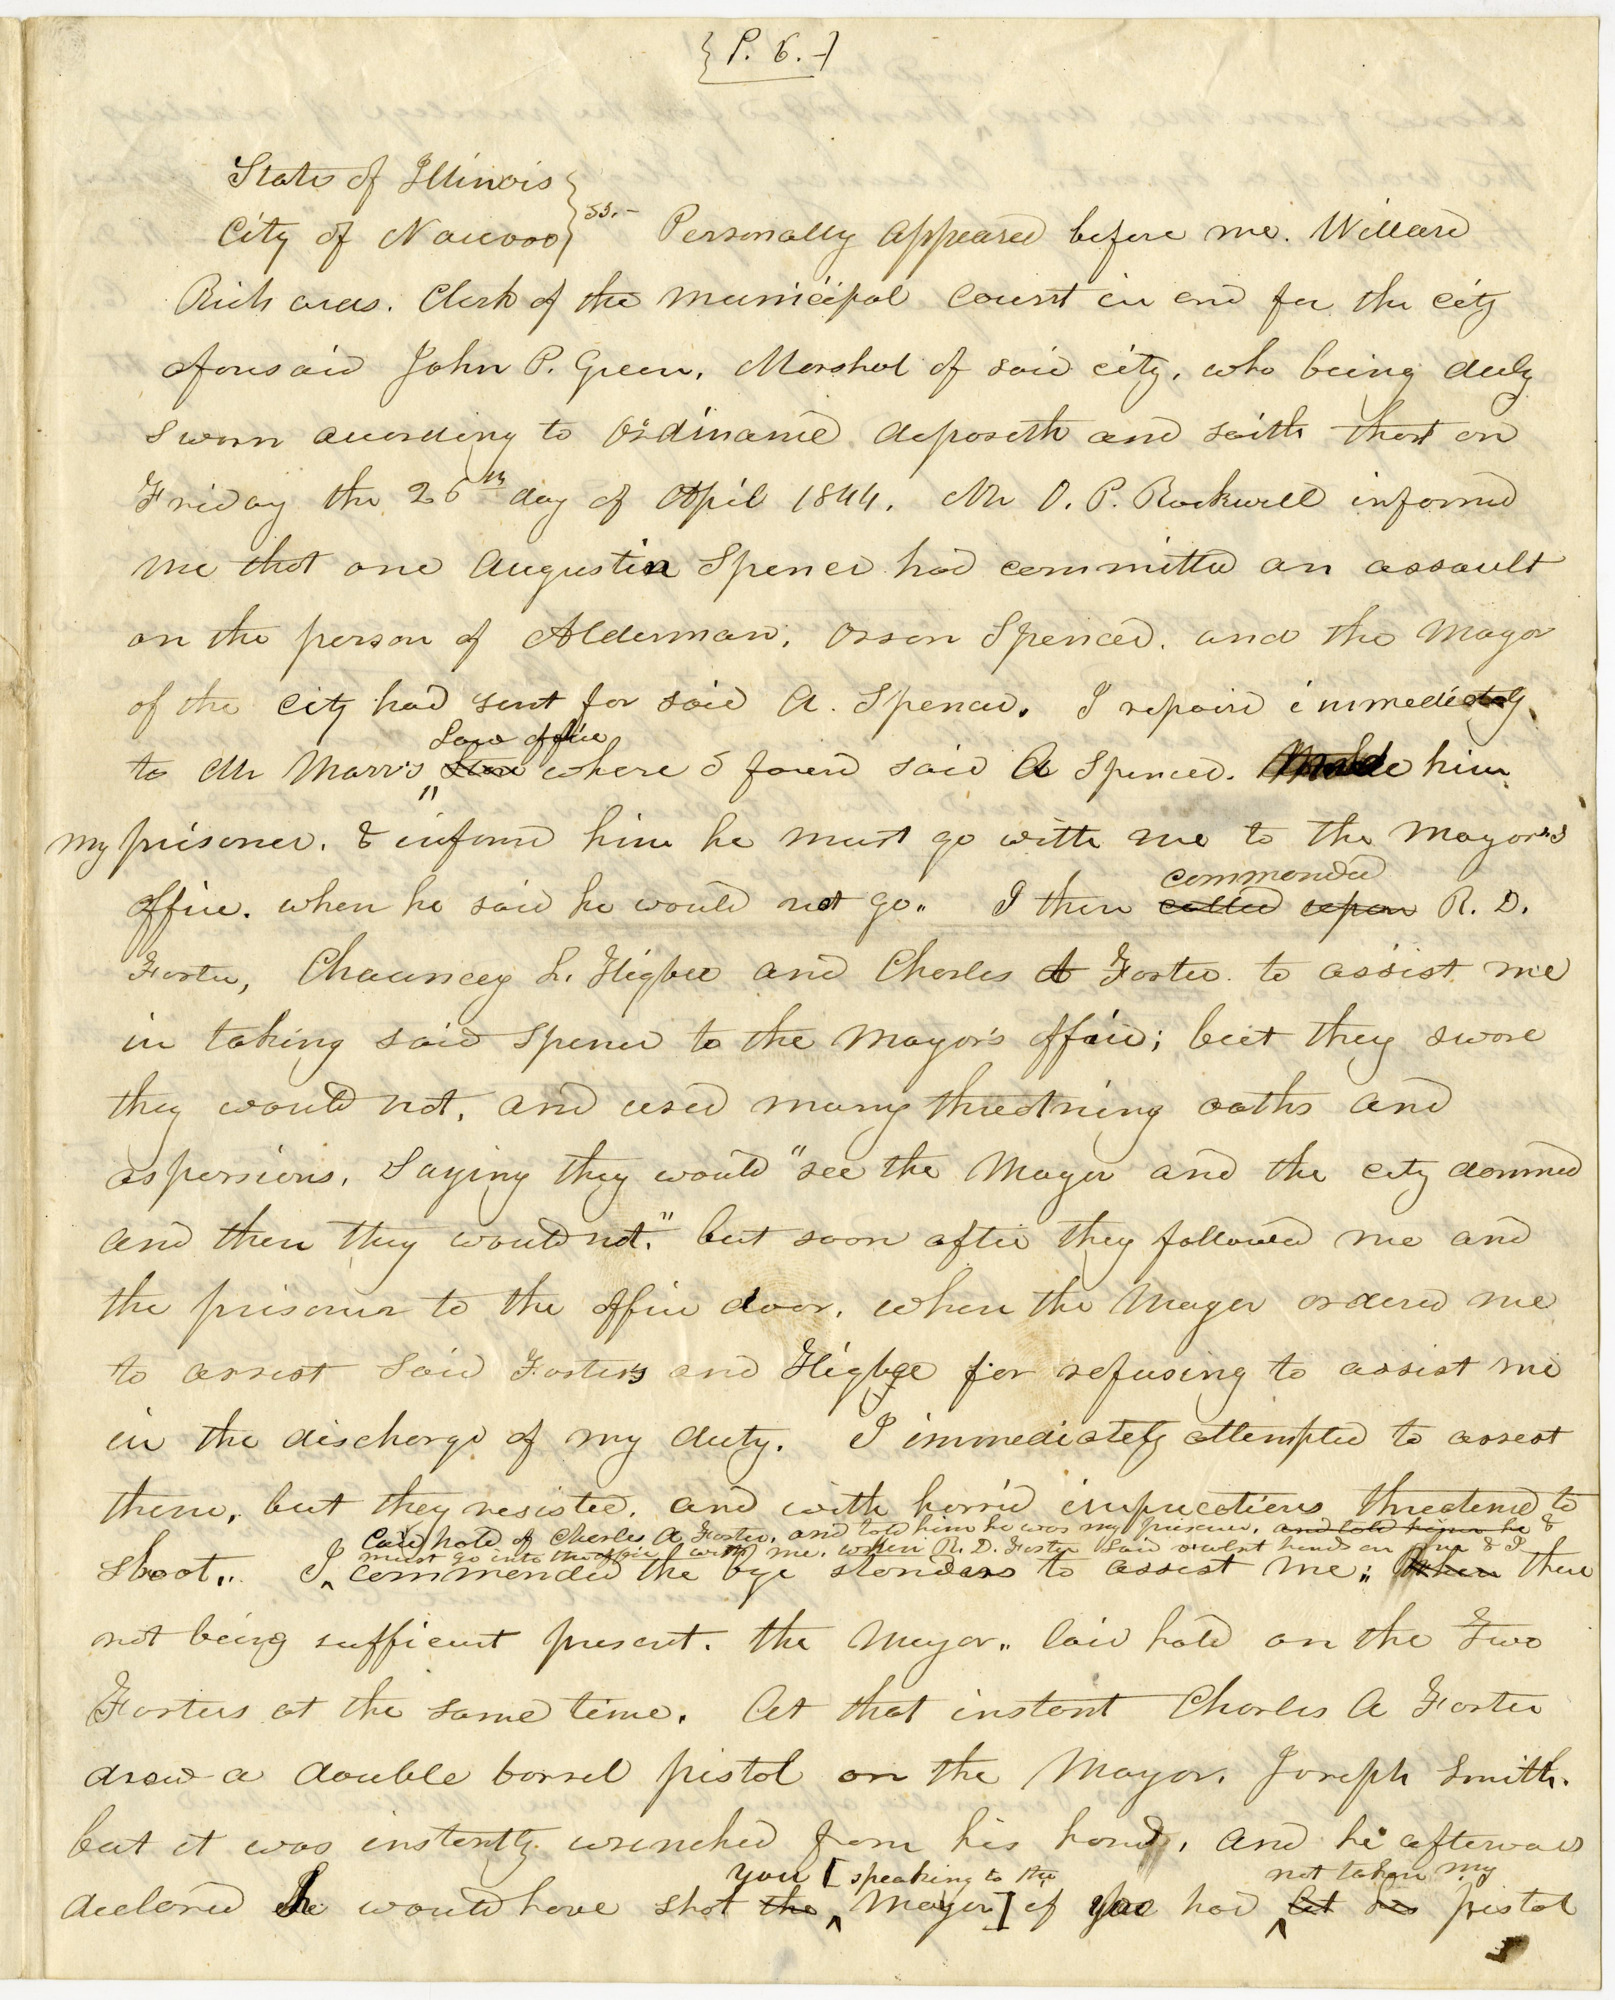 {P. 6.-}
State of Illinois
City of Nauvoo } ss.- Personally appeared before me. Willard
Richards. Clerk of the municipal court in and for the city
aforesaid John P. Green, Marshal of said city, who being duly
sworn according to Ordinance. deposeth and saith that on
Friday the 26th day of April 1844. Mr O. P. Rockwell informed
me that one Augustin Spencer had committed an assault
on the person of Alderman, Orson Spencer. and the Mayor
of the city had sent for said A. Spencer. I repaired immediately
Law office
to Mr Marr's store where I found said A Spencer. Made him
my prisoner. & informd him he must go with me to the Mayor's
commanded
office. when he said he would not go.. I then called upon R. D.
Foster, Chauncey L. Higbee and Charles A Foster to assist me
in taking said Spencer to the Mayor's office; but they swore
they would not, and used many threatning oaths and
aspersions, saying they would "see the Mayor and the city damned
and then they would not." but soon after they followed me and
the prisoner to the office door, when the Mayor ordered me
to arrest said Fosters and Higbee for refusing to assist me
in the discharge of my duty. I immediately attempted to arrest
them, but they resisted, and with horrid imprecations threatened to
laid hold of Charles A Foster, and told him he was my prisoner, and told him he &
must go into the office with me, when R. D. Foster said hands on & I
shoot.. I commanded the bye standers to assist me; when there
not being sufficient present. the Mayor.. laid hold on the Two
Fosters at the same time. At that instant Charles A Foster
drew a double barrel pistol on the Mayor, Joseph Smith.
but it was instantly wrenched from his hand, and he afterward
you [speaking to the not taken my
declared he would have shot the Mayor] if you had let his pistol